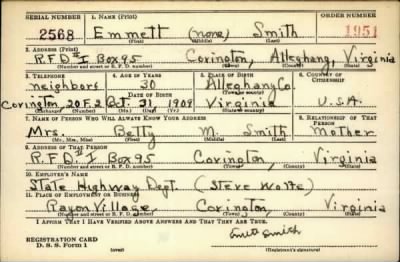 SERIAL NUMBER 1. NAME (Print) ORDER NUMBER
2568 Emmett (none) Smith 1951
(First) (Middle) (Last)
2. ADDRESS (Print)
R.F.D.#1 Box 95 Covington, Alleghany, Virginia
(Number and street or R. F. D. number) (Town) (County) (State)
3. TELEPHONE 4. AGE IN YEARS 5. PLACE OF BIRTH 6. COUNTRY OF CITIZENSHIP
neighbors 30 Alleghany Co.
DATE OF BIRTH
Covington 20F2 Oct. 31 1909 Virginia U.S.A.
(Exchange) (Number) (Mo.) (Day) (Yr.) (State or country)
7. NAME OF PERSON WHO WILL ALWAYS KNOW YOUR ADDRESS 8. RELATIONSHIP OF THAT PERSON
Mrs. Betty M. Smith Mother
(Mr., Mrs., Miss) (First) (Middle) (Last)
9. ADDRESS OF THAT PERSON
R.F.D.#1 Box 95 Covington, Virginia
(Number and street or R. F. D. number) (Town) (County) (State)
10. EMPLOYER'S NAME
State Highway Dept. (Steve Wolfe)
11. PLACE OF EMPLOYMENT OR BUSINESS
Rayon Village, Covington, Virginia
(Number and street or R. F. D. number) (Town) (County) (State)
I AFFIRM THAT I HAVE VERIFIED ABOVE ANSWERS AND THAT THEY ARE TRUE.
Emett Smith
REGISTRATION CARD
D. S. S. Form 1 (over) (Registrant's signature)